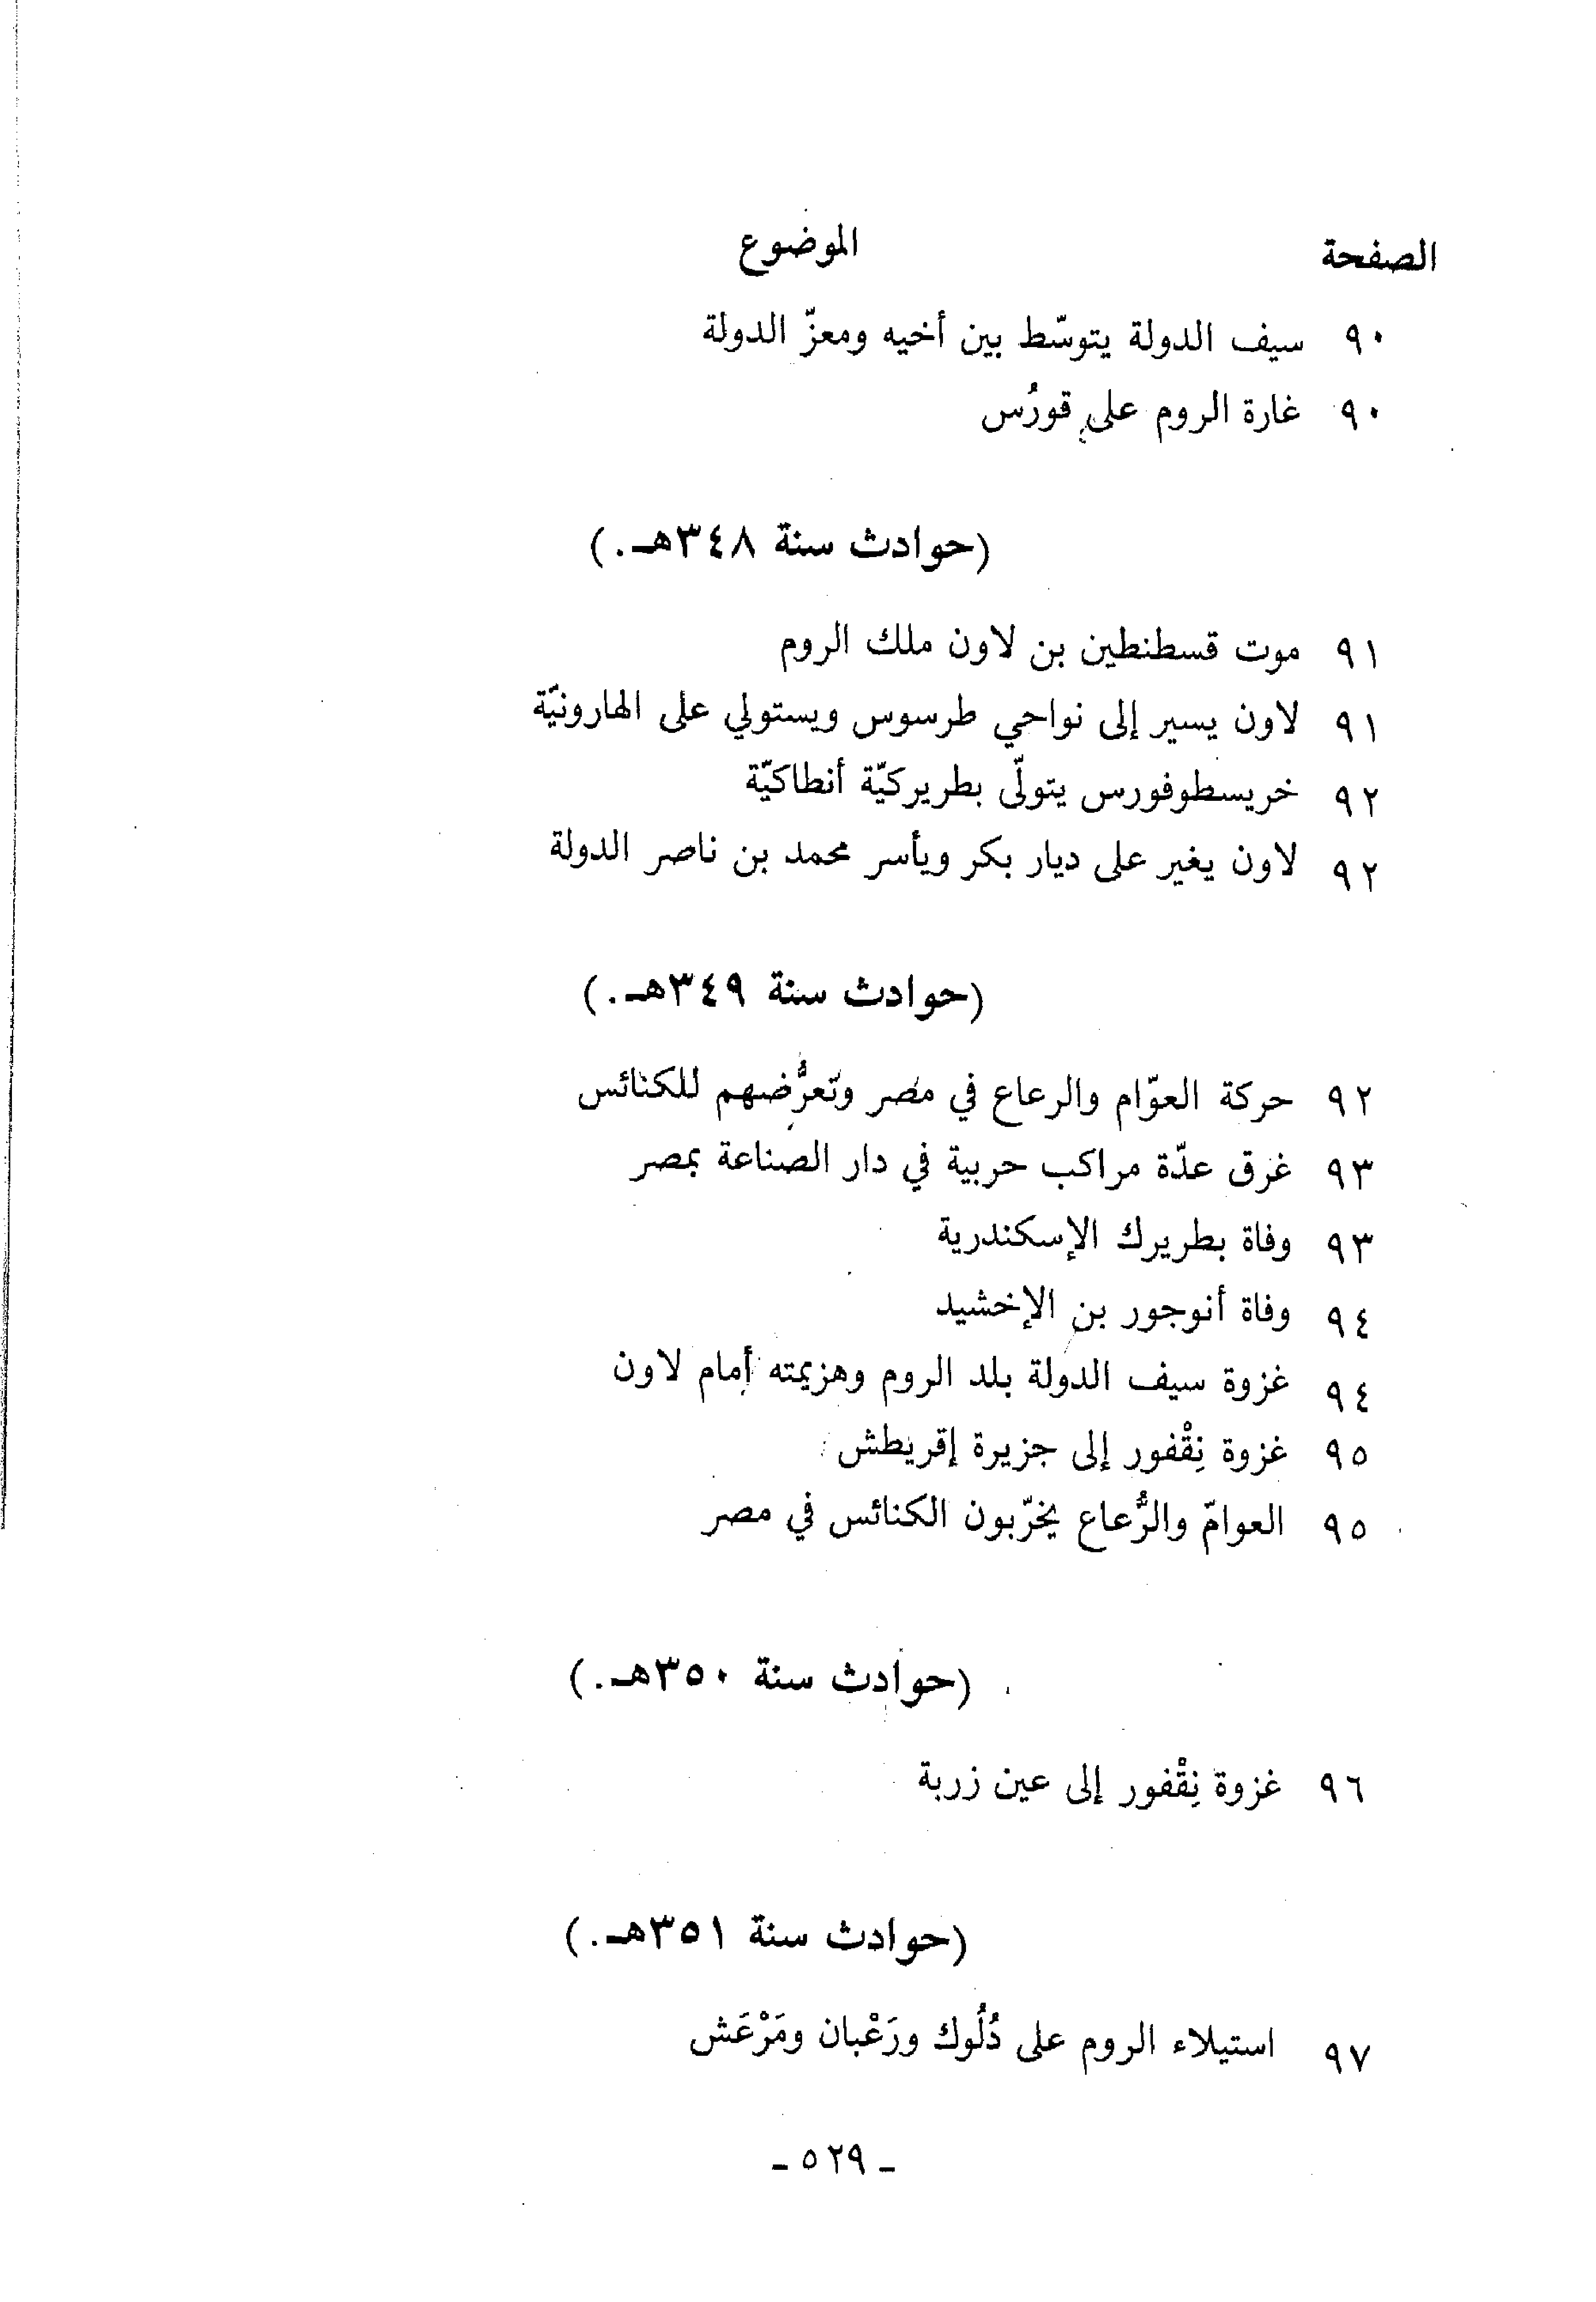 الصفحة الموضوع
٩٠ سيف الدولة يتوسّط بين أخيه ومعزّ الدولة
٩٠ غارة الروم على قورُس
(حوادث سنة ٣٤٨هـ.)
٩١ موت قسطنطين بن لاون ملك الروم
٩١ لاون يسير إلى نواحي طرسوس ويستولي على الهارونيّة
٩٢ خريسطوفورس يتولّى بطريركيّة أنطاكيّة
٩٢ لاون يغير على ديار بكر ويأسر محمد بن ناصر الدولة
(حوادث سنة ٣٤٩هـ.)
٩٢ حركة العوّام والرعاع في مصر وتعرُّضهم للكنائس
٩٣ غرق عدّة مراكب حربية في دار الصناعة بمصر
٩٣ وفاة بطريرك الإسكندرية
٩٤ وفاة أنوجور بن الإخشيد
٩٤ غزوة سيف الدولة بلد الروم وهزيمته أمام لاون
٩٥ غزوة نِقْفور إلى جزيرة إقريطش
٩٥ العوامّ والرُّعاع يخرّبون الكنائس في مصر
(حوادث سنة ٣٥٠هـ.)
٩٦ غزوة نِقْفور إلى عين زربة
(حوادث سنة ٣٥١هـ.)
٩٧ استيلاء الروم على دُلُوك ورَعْبان ومَرْعَش
- ٥٢٩ -